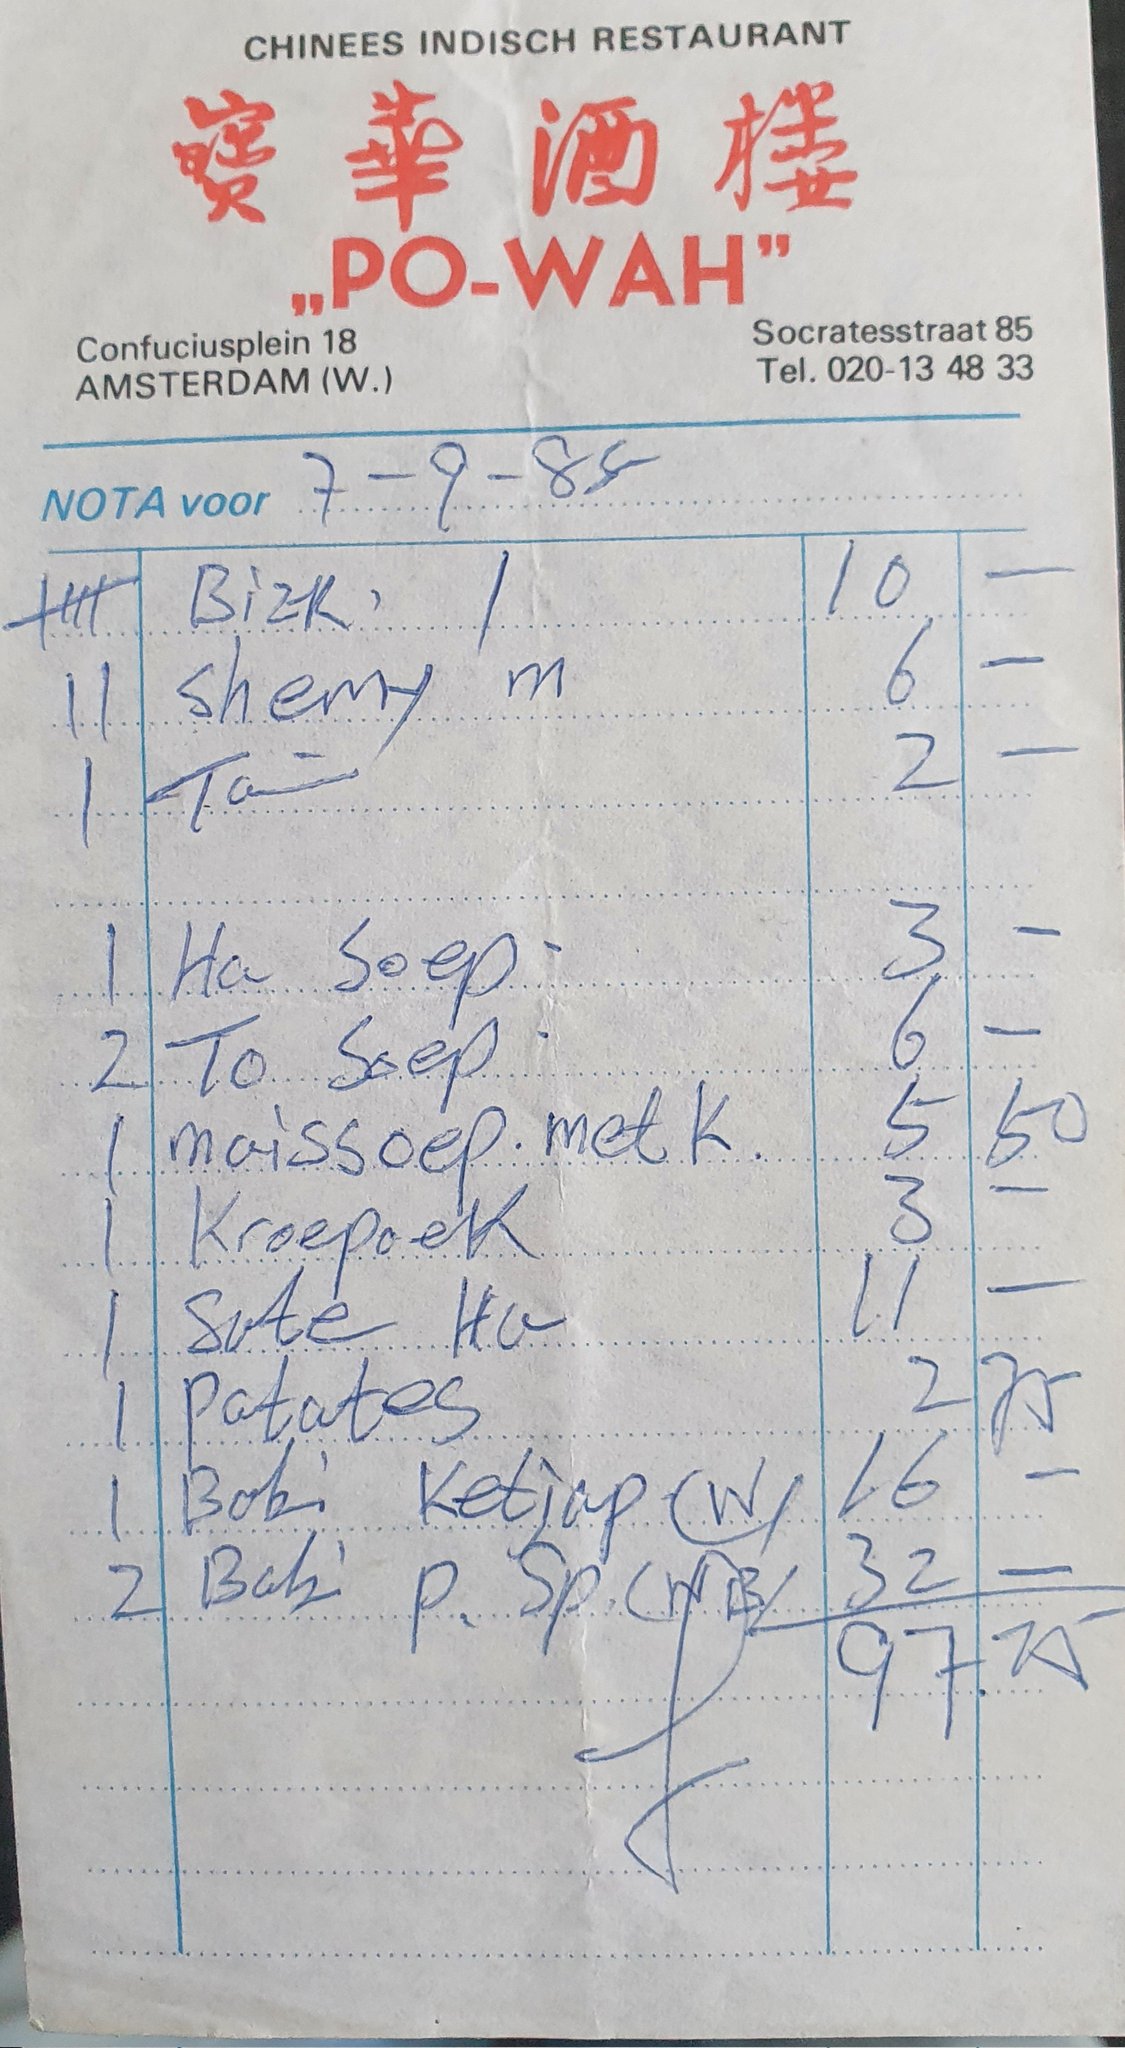 CHINEES INDISCH RESTAURANT
寶華酒樓
„PO-WAH”
Confuciusplein 18 Socratesstraat 85
AMSTERDAM (W.) Tel. 020-13 48 33
NOTA voor 7-9-85
10 —
11 sherry m 6 —
1 2 —
1 Ha Soep 3 —
2 To Soep 6 —
1 maissoep. met k. 5 50
1 Kroepoek 3 —
1 Sate Ha 11 —
1 patates 2 75
1 Babi Ketjap (W) 16 —
2 Babi p. Sp. 32 —
97.25